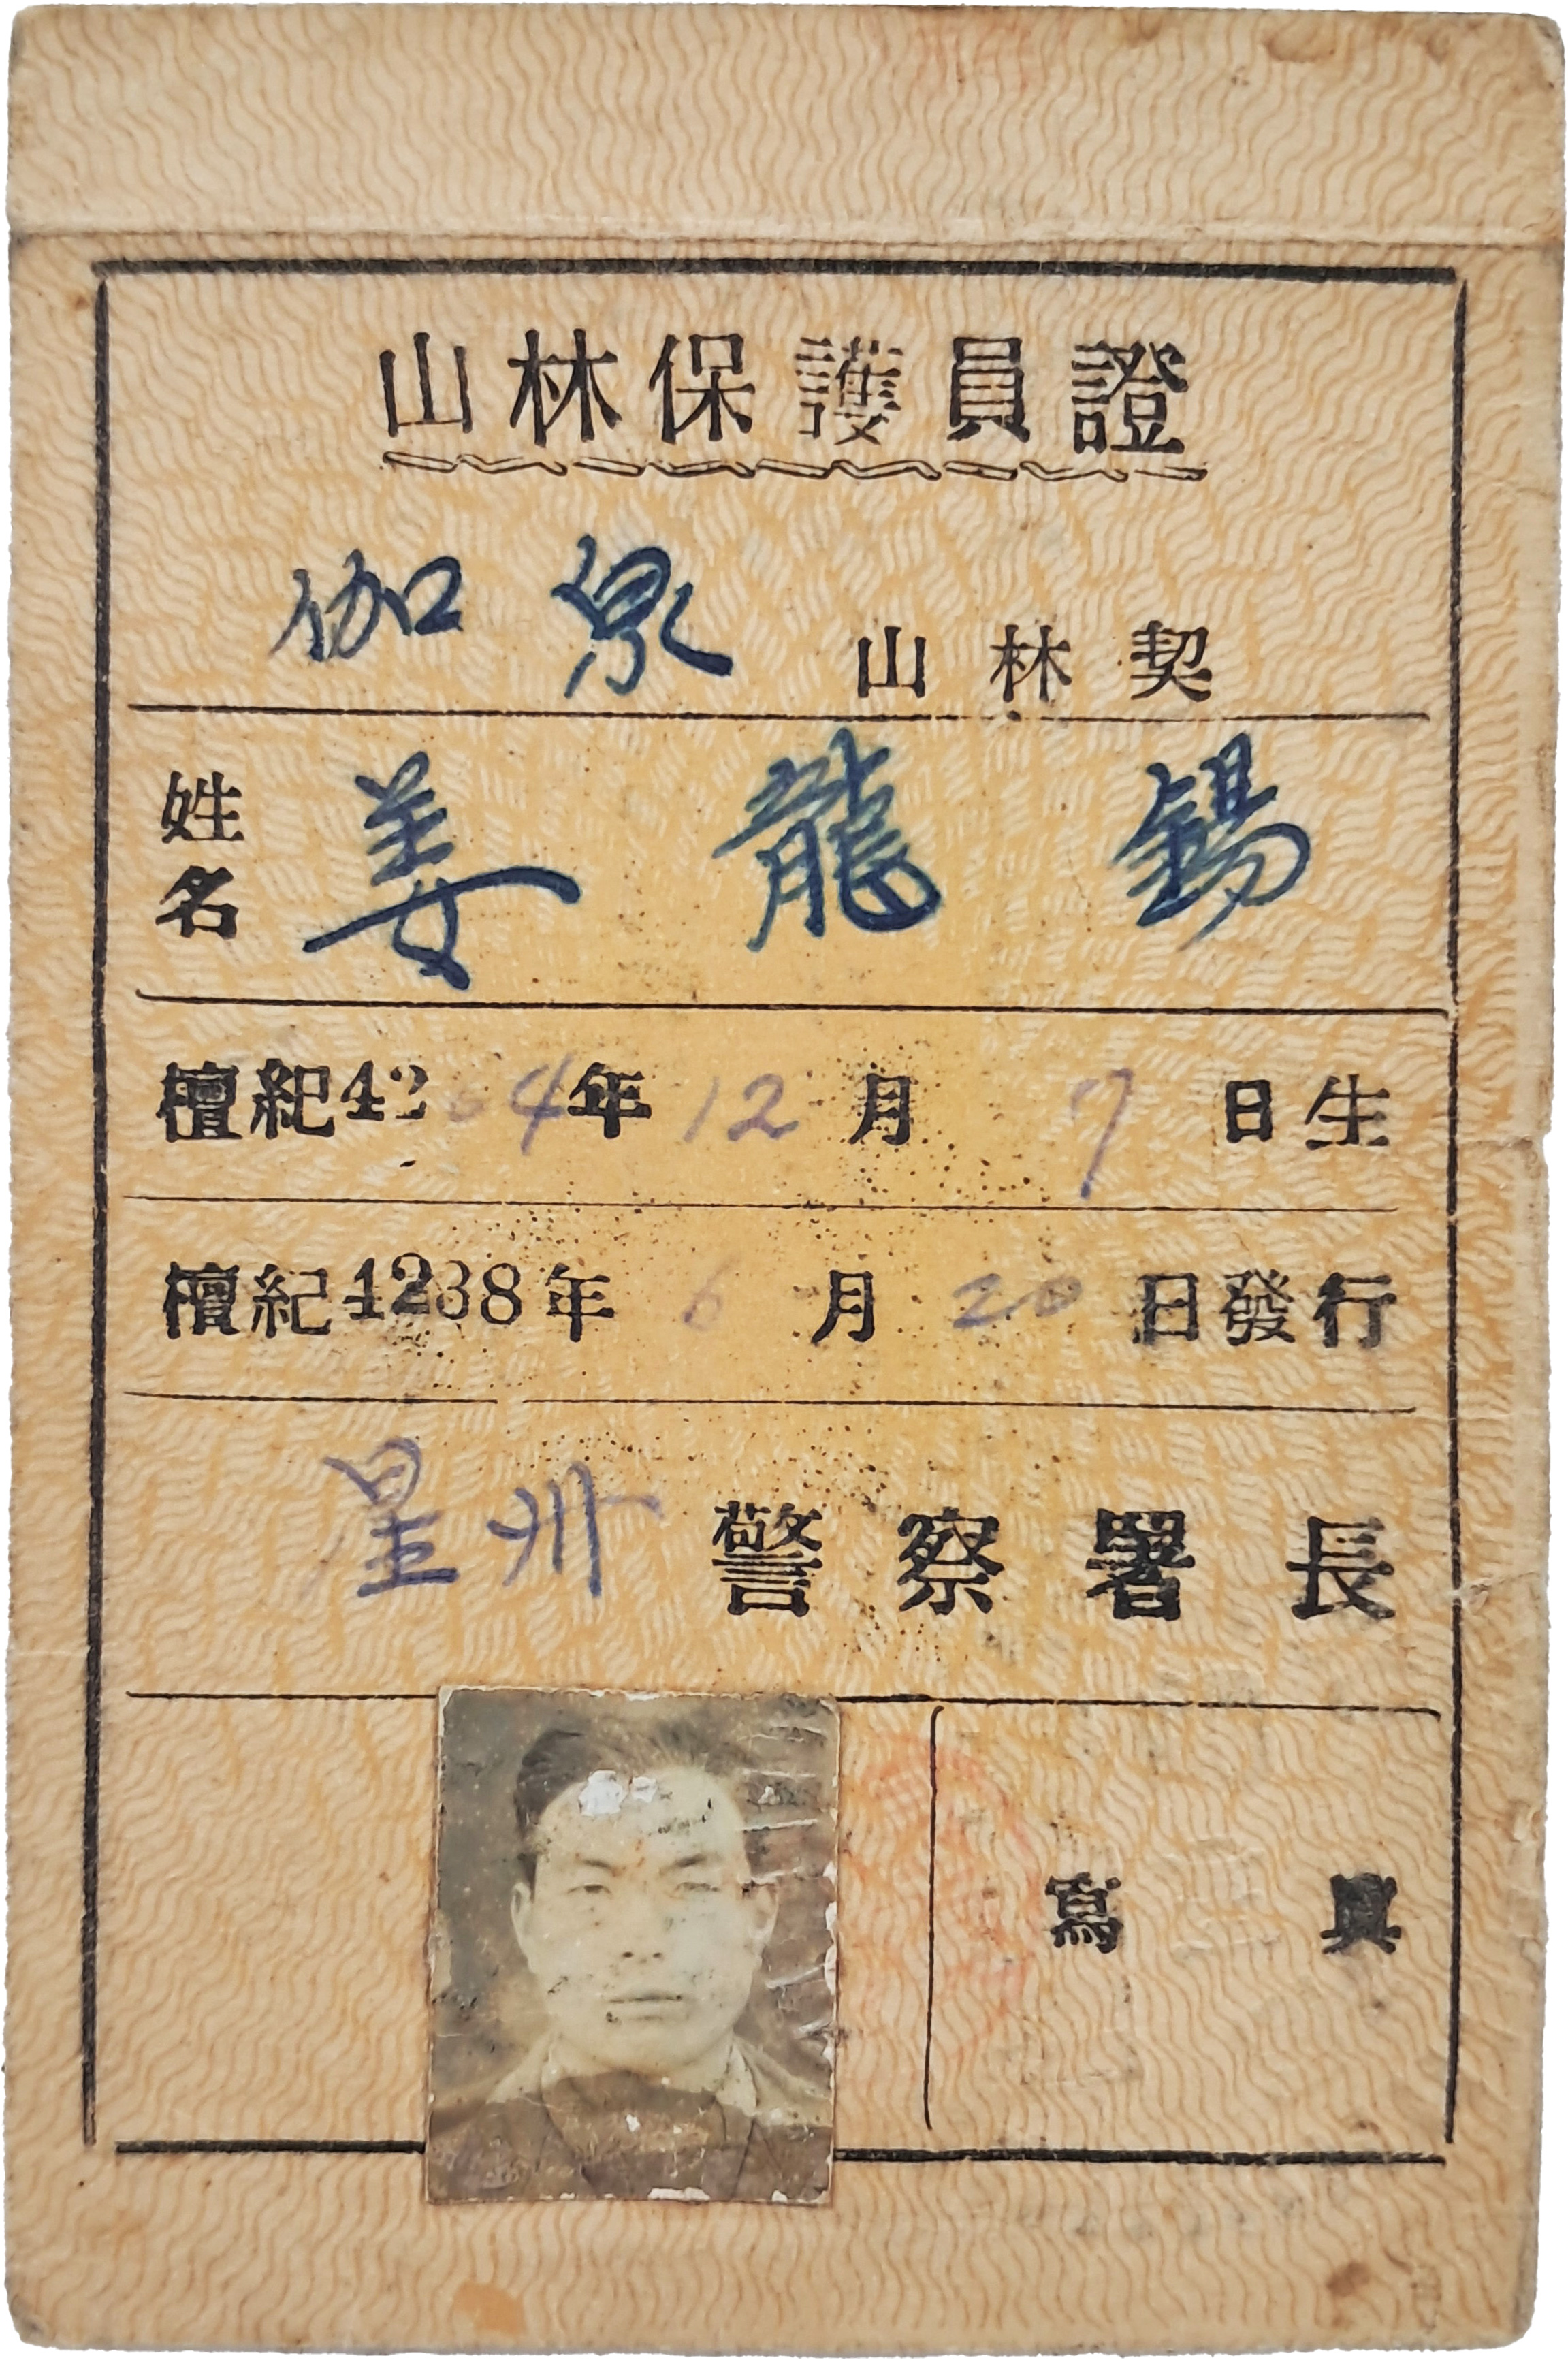 山林保護員證
伽泉 山林契
姓名 姜龍錫
檀紀4264年 12月 7日生
檀紀4288年 6月 20日發行
星州 警察署長
寫眞